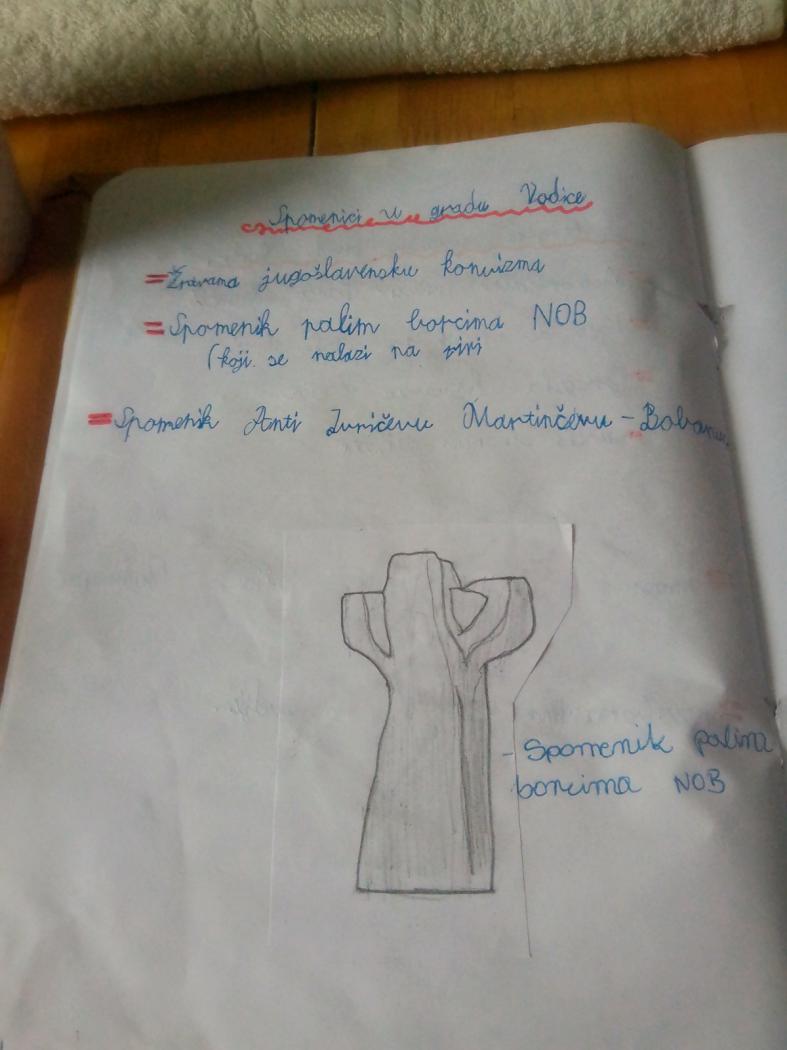 Spomenici u gradu Vodice
= Žrtvama jugoslavensku komuizma
= Spomenik palim borcima NOB
(koji se nalazi na rivi
= Spomenik Anti Juričevu Martinčevu - Bobanu
- Spomenik palima
borcima NOB